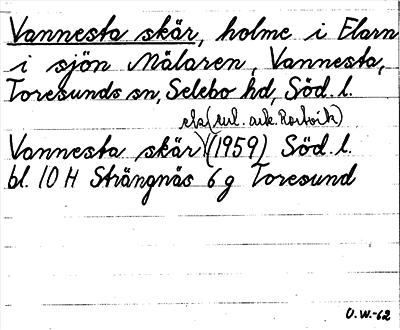 Vannesta skär, holme i Elarn
i sjön Mälaren, Vannesta,
Toresunds sn, Selebo hd, Söd. l.
eks (enl. ark. Rostvik)
Vannesta skär (1959) Söd. l.
bl. 10 H Strängnäs 6 g Toresund
O.W.-62